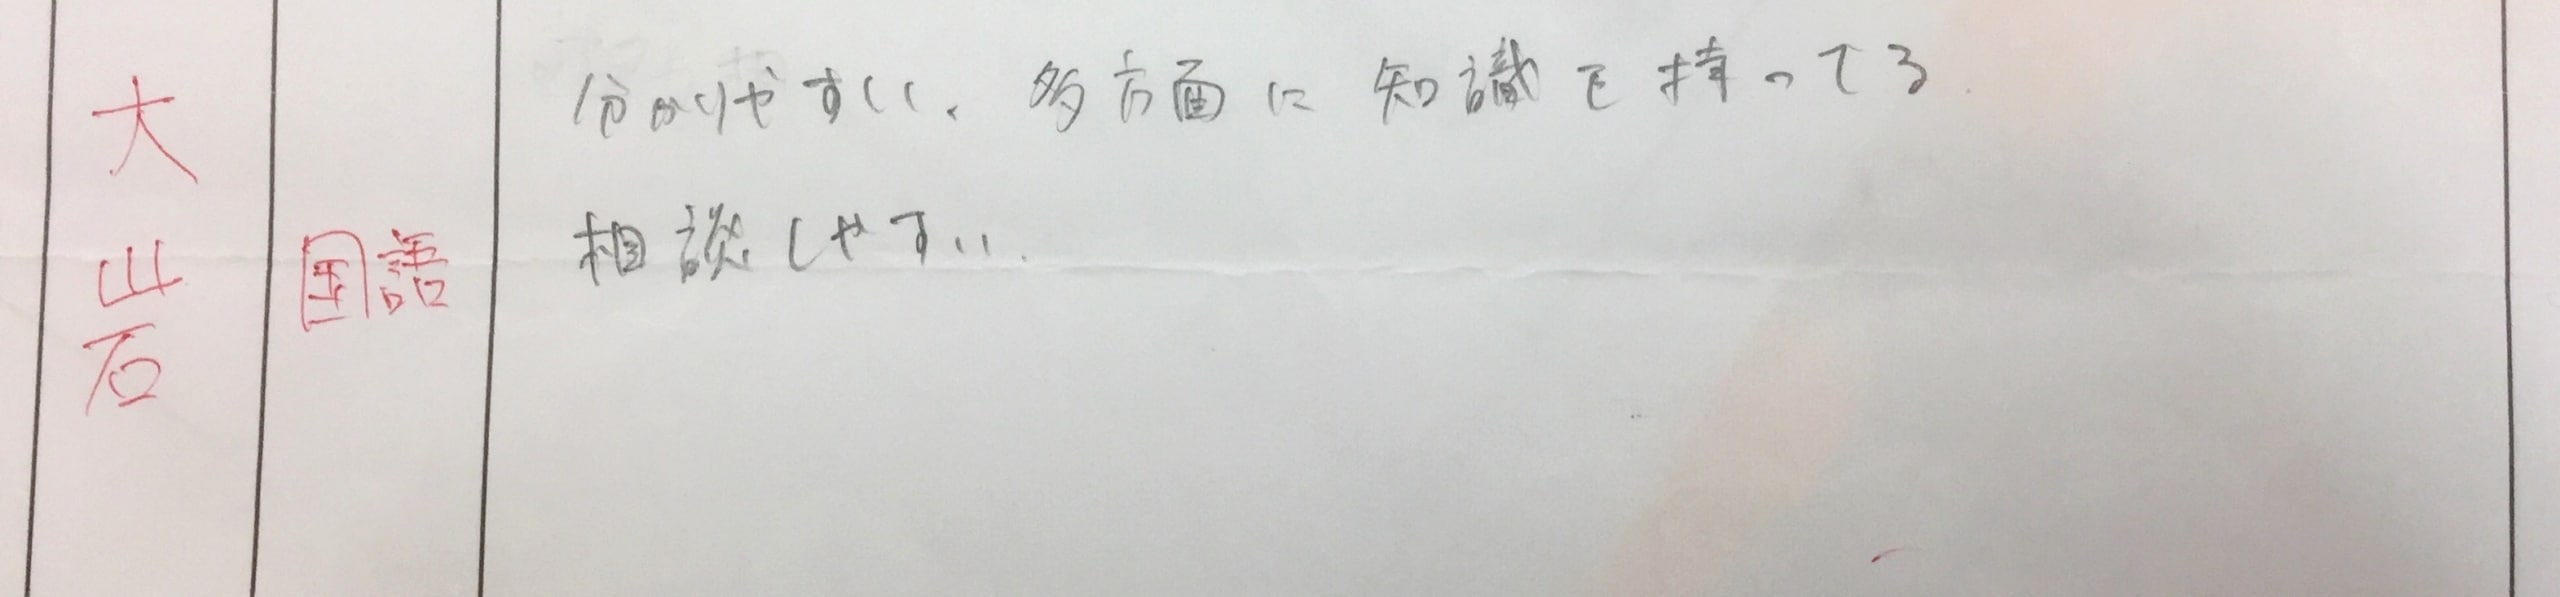 大岩
国語
分かりやすい、多方面に知識を持ってる
相談しやすい.